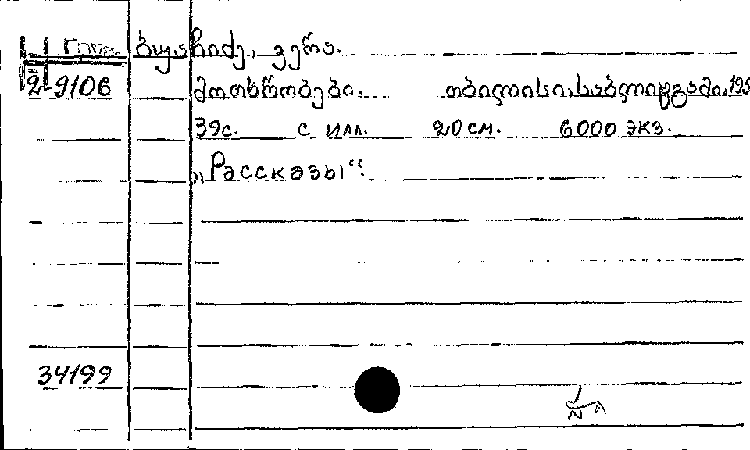 ბუაჩიძე, ვერა.
2-9106 მოთხრობები. თბილისი, საბლიტგამი, 195
39с. с илл. 20 см. 6000 экз.
„Рассказы“.
34199